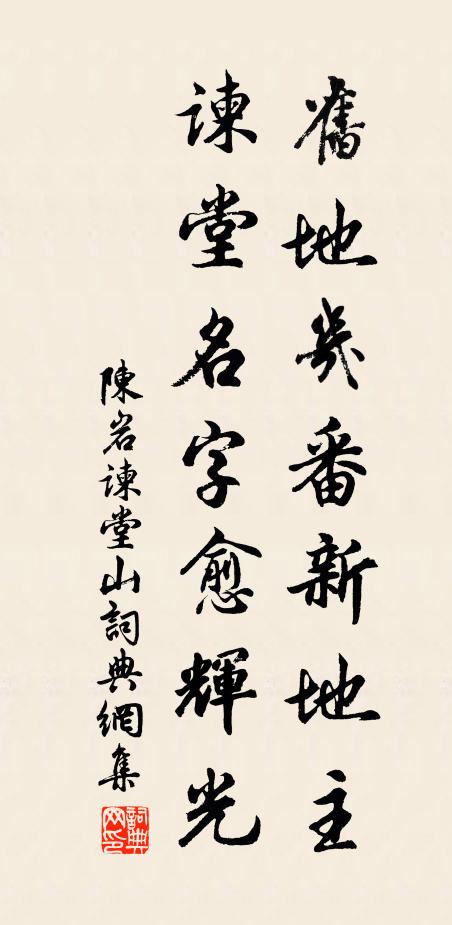 舊地幾番新地主
諫堂名字愈輝光
陳岩諫堂山詞典網集
詞典網印